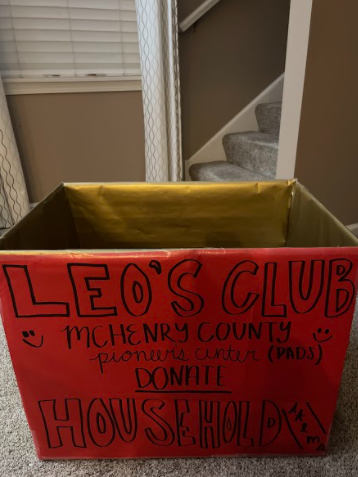 LEO'S CLUB
MCHENRY COUNTY
pioneers center (PADS)
DONATE
HOUSEHOLD